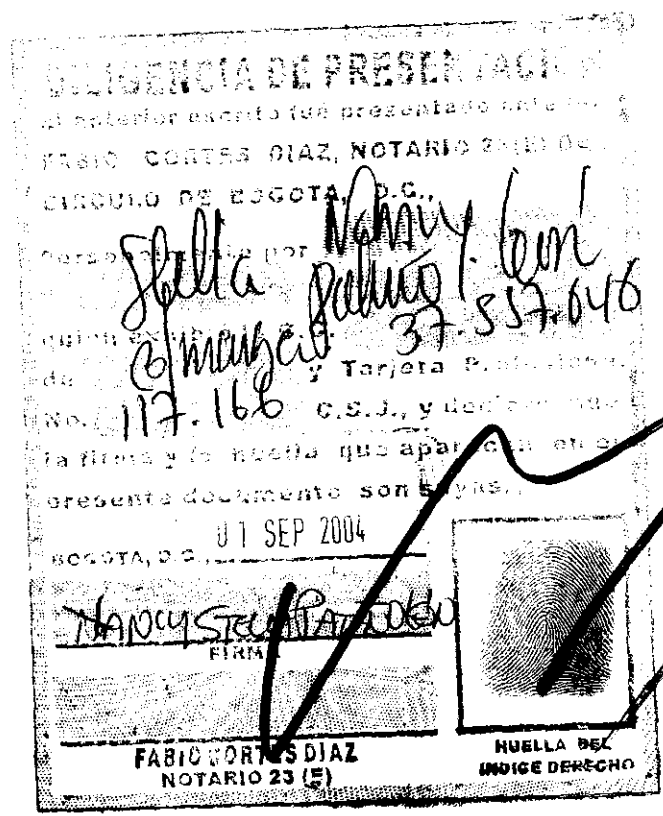 DILIGENCIA DE PRESENTACION
El anterior escrito fue presentado ante
FABIO CORTES DIAZ, NOTARIO 23 (E) DE
CIRCULO DE BOGOTA, D.C.,
Personalmente por Nancy
Stella Patiño León
quien exhibió 37.557.046
de y Tarjeta Profesional
No. 117.166 C.S.J., y declaró que
la firma y la huella que aparecen en el
presente documento son suyas.
BOGOTA, D.C., 01 SEP 2004
NANCY STELLA PATIÑO LEON
FIRMA
FABIO CORTES DIAZ
NOTARIO 23 (E)
HUELLA DEL
INDICE DERECHO